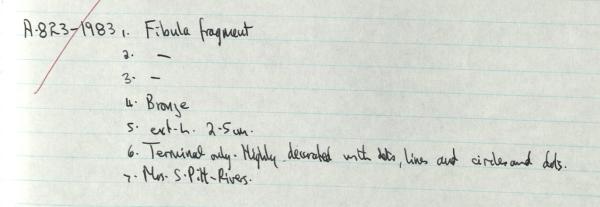 A.823-1983 1. Fibula fragment
2. —
3. —
4. Bronze
5. ext. h. 2.5cm.
6. Terminal only. Highly decorated with dots, lines and circles and dots.
7. Mrs. S. Pitt-Rivers.